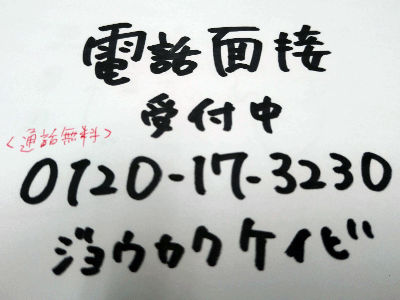 電話面接
受付中
<通話無料>
0120-17-3230
ジョウカクケイビ